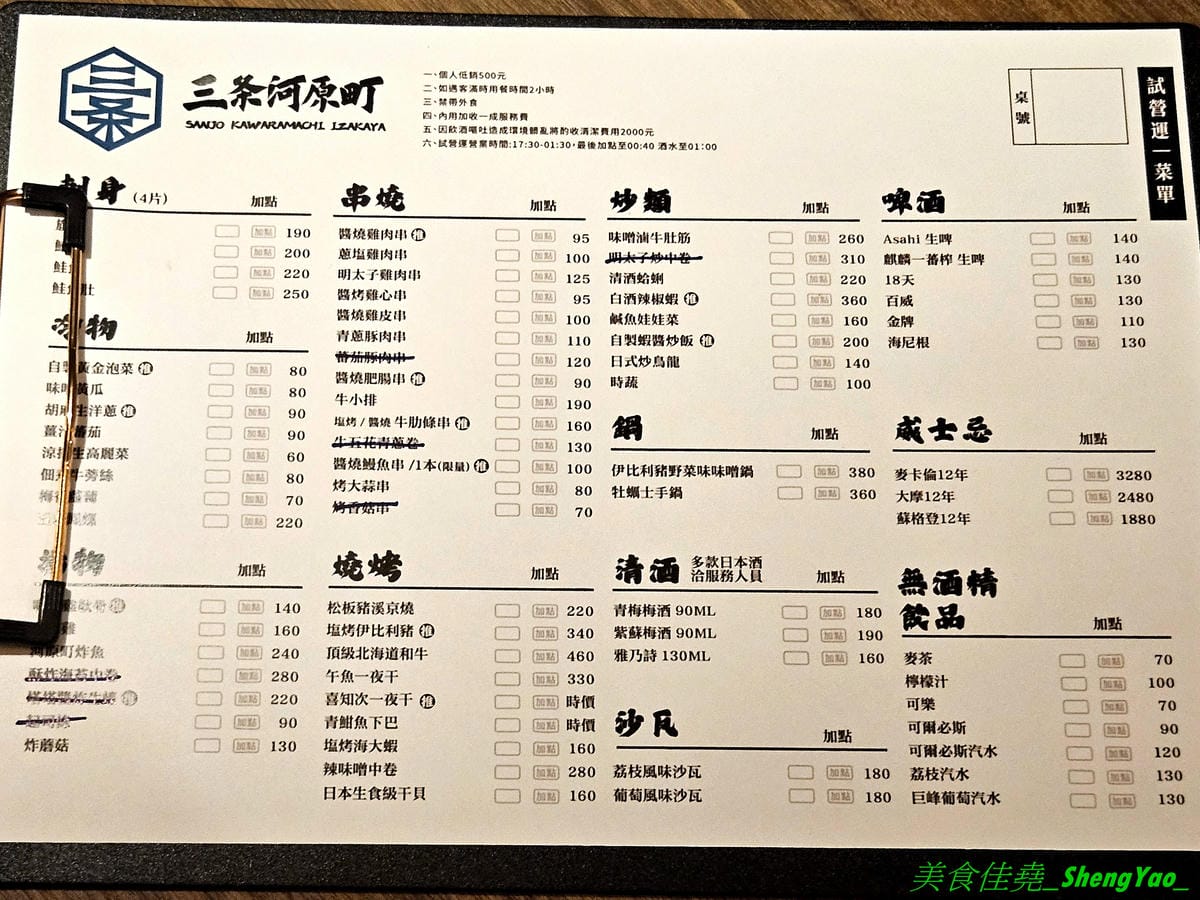 三条
三条河原町
SANJO KAWARAMACHI IZAKAYA
一、個人低銷500元
二、如遇客滿時用餐時間2小時
三、禁帶外食
四、內用加收一成服務費
五、因飲酒嘔吐造成環境髒亂將酌收清潔費用2000元
六、試營運營業時間:17:30-01:30,最後加點至00:40 酒水至01:00
桌號
試營運一菜單
刺身 (4片) 加點
加點 190
加點 200
鮭 加點 220
鮭 肚 加點 250
物 加點
自 黃金泡菜 推 加點 80
味 黃瓜 加點 80
胡 生洋蔥 推 加點 90
薑 蕃茄 加點 90
涼 生高麗菜 加點 60
佃 牛蒡絲 加點 80
梅 加點 70
螺 加點 220
物 加點
軟骨 推 加點 140
雞 加點 160
河原町炸魚 加點 240
酥炸海苔中卷 加點 280
推 加點 220
加點 90
炸蘑菇 加點 130
串燒 加點
醬燒雞肉串 推 加點 95
蔥塩雞肉串 加點 100
明太子雞肉串 加點 125
醬烤雞心串 加點 95
醬燒雞皮串 加點 100
青蔥豚肉串 加點 110
蕃茄豚肉串 加點 120
醬燒肥腸串 推 加點 90
牛小排 加點 190
塩烤 / 醬燒 牛肋條串 推 加點 160
牛五花青蔥卷 加點 130
醬燒鰻魚串 /1本(限量) 推 加點 100
烤大蒜串 加點 80
烤香菇串 加點 70
燒烤 加點
松板豬溪京燒 加點 220
塩烤伊比利豬 推 加點 340
頂級北海道和牛 加點 460
午魚一夜干 加點 330
喜知次一夜干 推 加點 時價
青魽魚下巴 加點 時價
塩烤海大蝦 加點 160
辣味噌中卷 加點 280
日本生食級干貝 加點 160
炒類 加點
味噌滷牛肚筋 加點 260
明太子炒中卷 加點 310
清酒蛤蜊 加點 220
白酒辣椒蝦 推 加點 360
鹹魚娃娃菜 加點 160
自製蝦醬炒飯 推 加點 200
日式炒烏龍 加點 140
時蔬 加點 100
鍋 加點
伊比利豬野菜味味噌鍋 加點 380
牡蠣士手鍋 加點 360
清酒 多款日本酒 洽服務人員 加點
青梅梅酒 90ML 加點 180
紫蘇梅酒 90ML 加點 190
雅乃詩 130ML 加點 160
沙瓦 加點
荔枝風味沙瓦 加點 180
葡萄風味沙瓦 加點 180
啤酒 加點
Asahi 生啤 加點 140
麒麟一番榨 生啤 加點 140
18天 加點 130
百威 加點 130
金牌 加點 110
海尼根 加點 130
威士忌 加點
麥卡倫12年 加點 3280
大摩12年 加點 2480
蘇格登12年 加點 1880
無酒精
飲品 加點
麥茶 加點 70
檸檬汁 加點 100
可樂 加點 70
可爾必斯 加點 90
可爾必斯汽水 加點 120
荔枝汽水 加點 130
巨峰葡萄汽水 加點 130
美食佳堯_ShengYao_